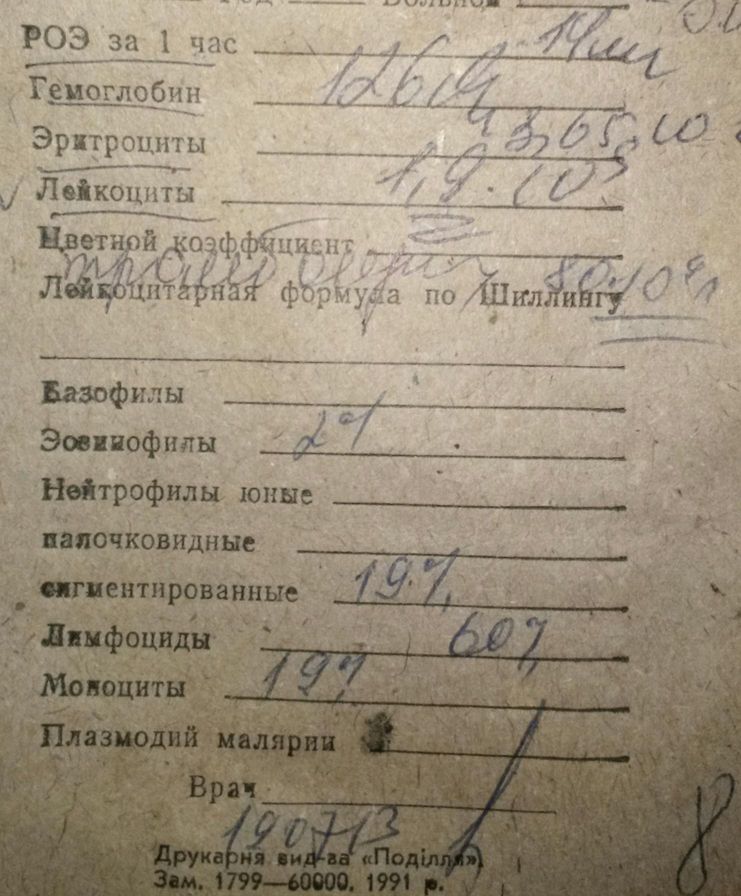 РОЭ за 1 час 14мм
Гемоглобин 126
Эритроциты 3,65·10
Лейкоциты 1,9·10⁹
Цветной коэффициент
тромбоциты 80·10⁹л
Лейкоцитарная формула по Шиллингу
Базофилы
Эозинофилы 2%
Нейтрофилы юные
палочковидные
сигментированные 19%
Лимфоциды 60%
Моноциты 19%
Плазмодий малярии
Врач
190713
Друкарня вид-ва «Поділля»
Зам. 1799—60000. 1991 р.
8